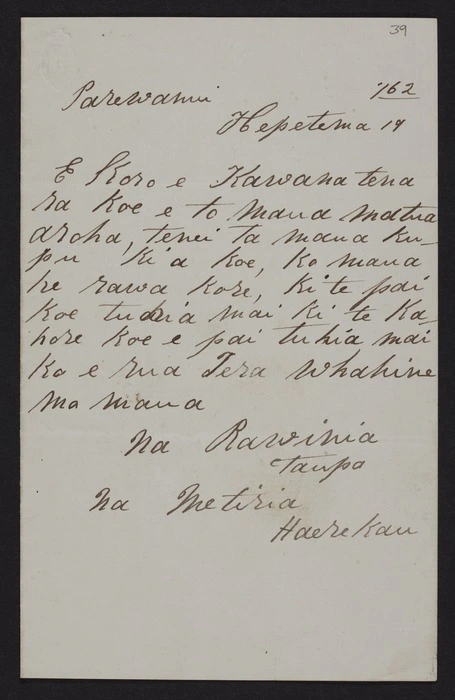 39
/62
Parewanui
Hepetema 19
E Koro e Kawana tena
ra Koe e to maua matua
aroha, tenei ta maua Ku-
pu Ki a Koe, Ko maua
he rawa Kore, Ki te pai
Koe tuhia mai Ki te Ka-
hore Koe e pai tuhia mai
Ko e rua Tera Whahine
mo maua
Na Rawinia
Taupo
Na Metiria
Haerekau